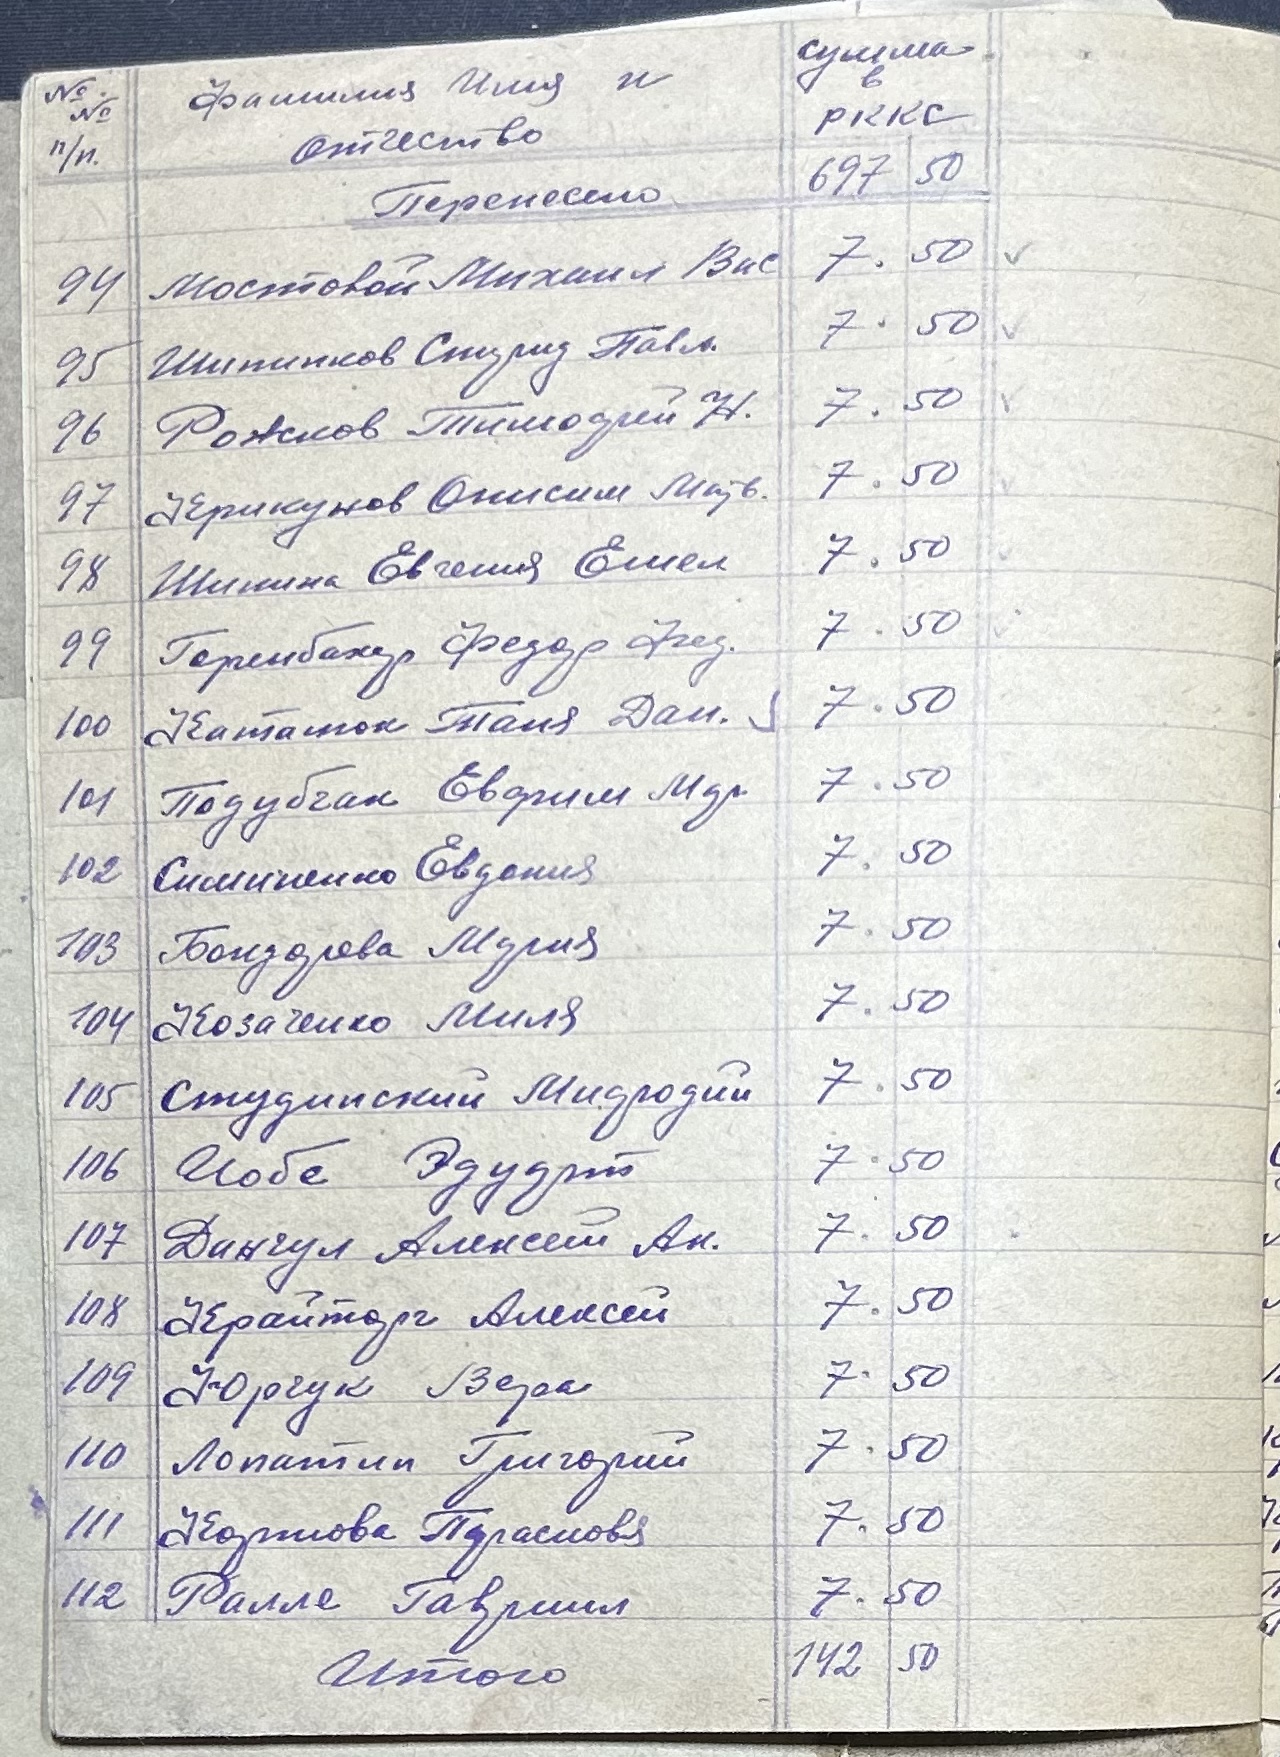 № № п/п. Фамилия Имя и Отчество сумма в РККС
Перенесено 697 50
94 Мостовой Михаил Вас 7. 50
95 Шипинков Спирид Павл. 7. 50
96 Рожков Тимофей Н. 7. 50
97 Крикунов Онисим Матв. 7. 50
98 Шипина Евгения Емел 7. 50
99 Горенбахер Федор Фед. 7. 50
100 Кататок Таня Дан. 7. 50
101 Подубчак Евфрим 7. 50
102 Симиненко Евдокия 7. 50
103 Бондарева Мария 7. 50
104 Козаченко Миля 7. 50
105 Студинский Мифодий 7. 50
106 Иобе Эдуарт 7. 50
107 Данчул Алексей Ан. 7. 50
108 Крайторг Алексей 7. 50
109 Юрчук Вера 7. 50
110 Лопатин Григорий 7. 50
111 Кортова Парасковя 7. 50
112 Ралле Гавриил 7. 50
Итого 142 50